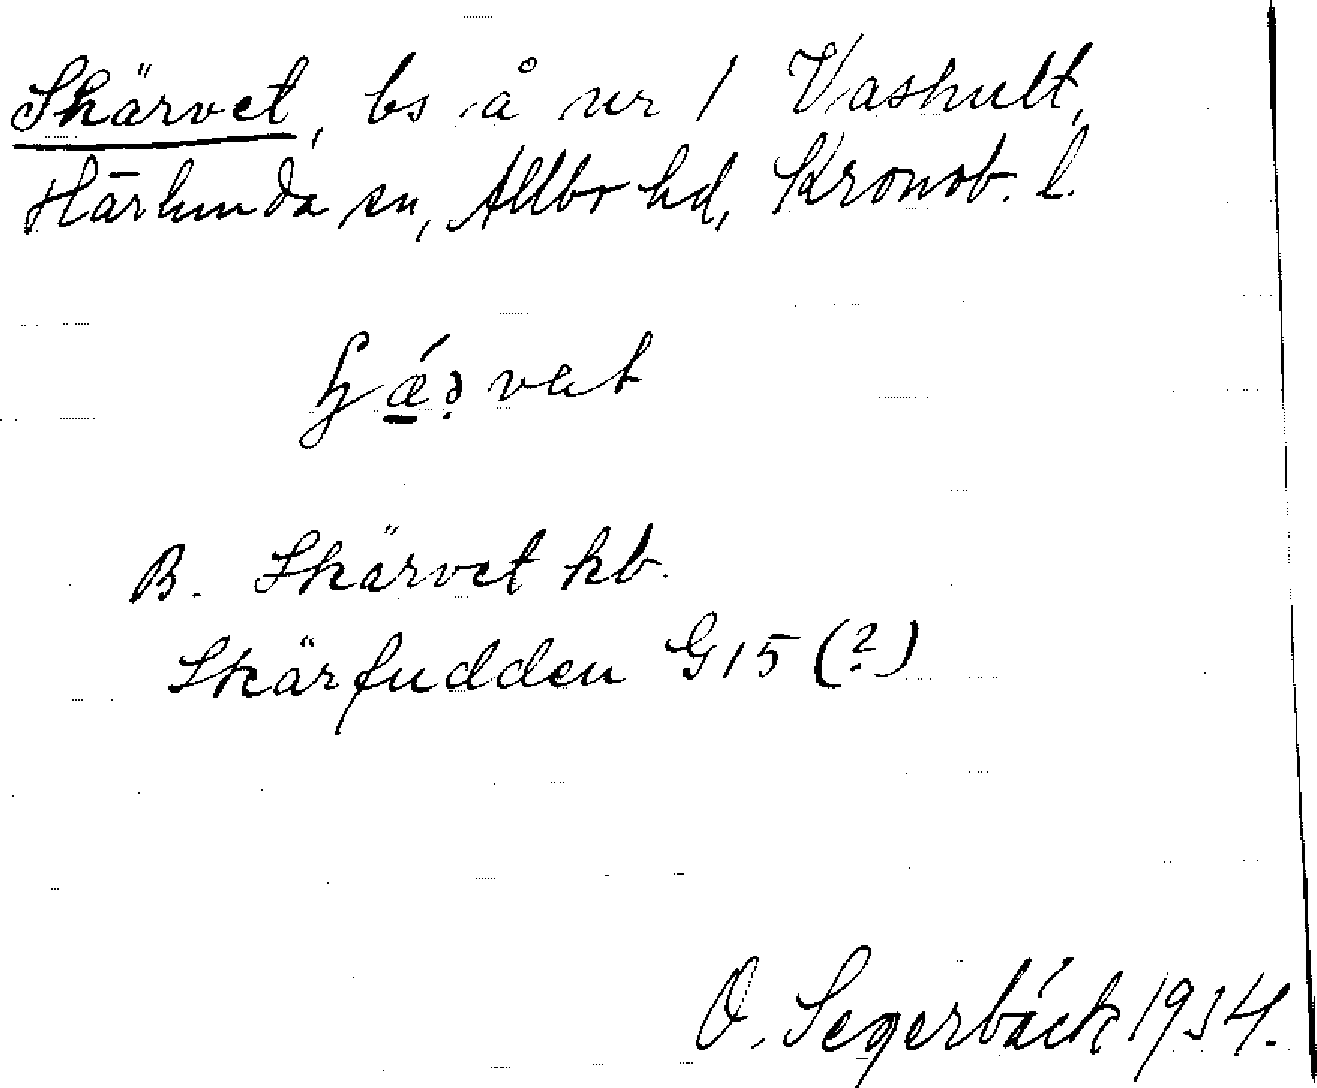 Skärvet, bs å nr 1 Vashult,
Härlunda sn, Allbo hd, Kronob. l.
B. Skärvet kb.
Skärfudden G15 (?)
O. Segerbäck 1934.